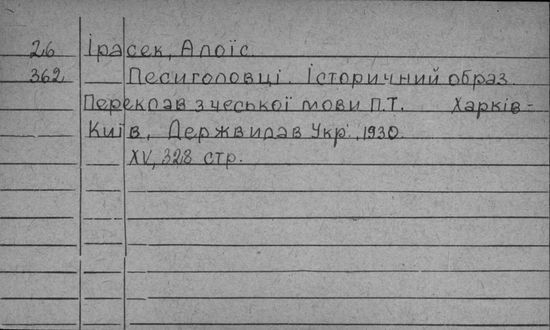 26 Ірасек, Алоїс.
362 Песиголовці. Історичний образ.
Переклав з чеської мови П.Т. Харків-
Київ, Держвидав Укр. 1930.
XV, 328 стр.